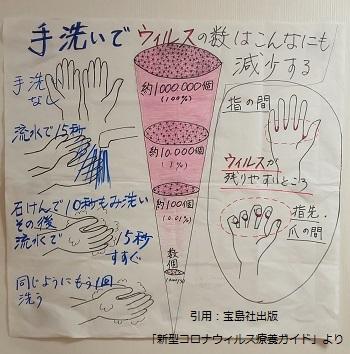 手洗いで ウィルスの数はこんなにも
減少する
手洗い
なし
約1000.000個
(100%)
流水で15秒
約10.000個
(1%)
石けんで10秒もみ洗い
その後
流水で
15秒
すすぐ
約100個
(0.01%)
同じようにもう1回
洗う
数個
指の間
ウィルスが
残りやすいところ
指先・
爪の間
引用：宝島社出版
「新型コロナウィルス療養ガイド」より